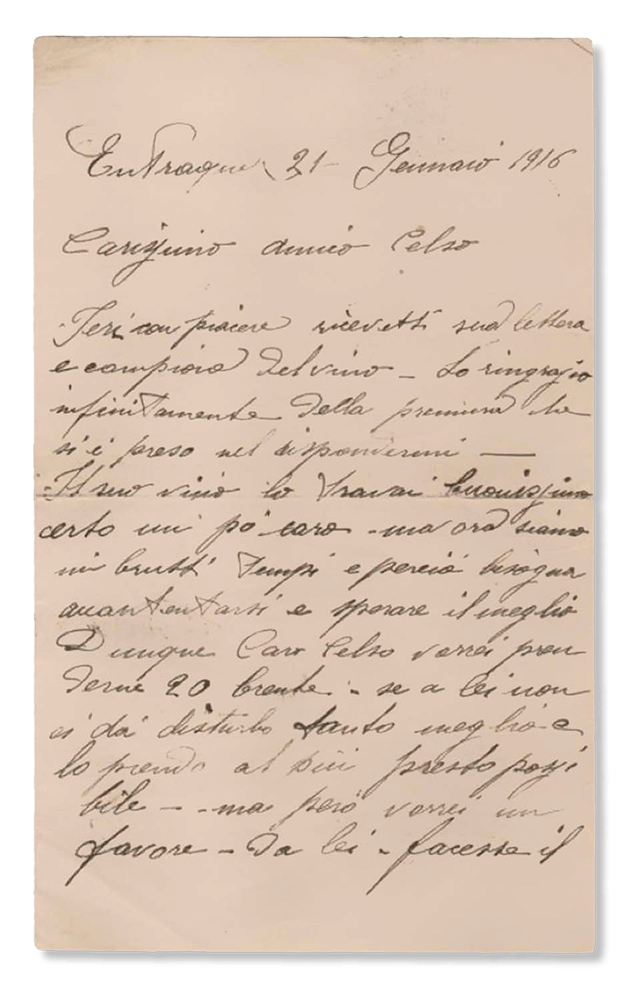 Entraque 21 Gennaio 1916
Carissimo amico Celso
Ieri con piacere ricevetti sua lettera
e campione del vino – Lo ringrazio
infinitamente della premura che
si è preso nel rispondermi —
Il suo vino lo trovai buonissimo
certo un pò caro – ma ora siamo
in brutti tempi e perciò bisogna
e sperare il meglio
Dunque Caro Celso vorrei pren
derne 20 brente – se a lei non
ci dà disturbo tanto meglio e
lo prendo al più presto possi
bile – – ma però vorrei un
favore – da lei – facesse il